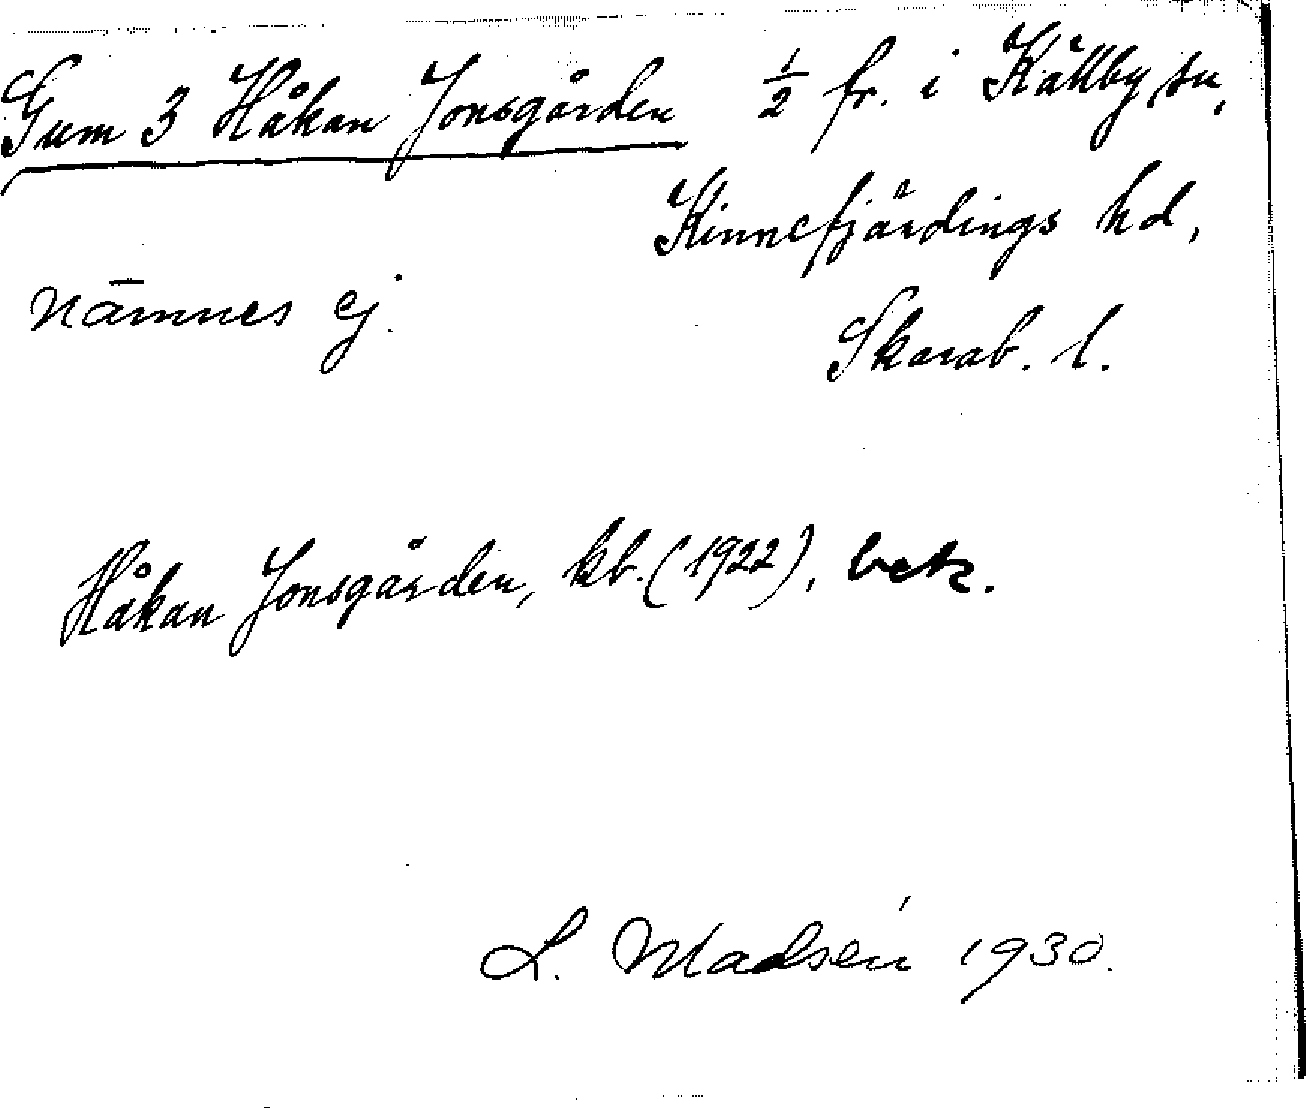 Gum 3 Håkan Jonsgården ½ fr. i Källby sn,
Kinnefjärdings hd,
nämnes ej.
Skarab. l.
Håkan Jonsgården, kb. (1922), betz.
L. Madsén 1930.